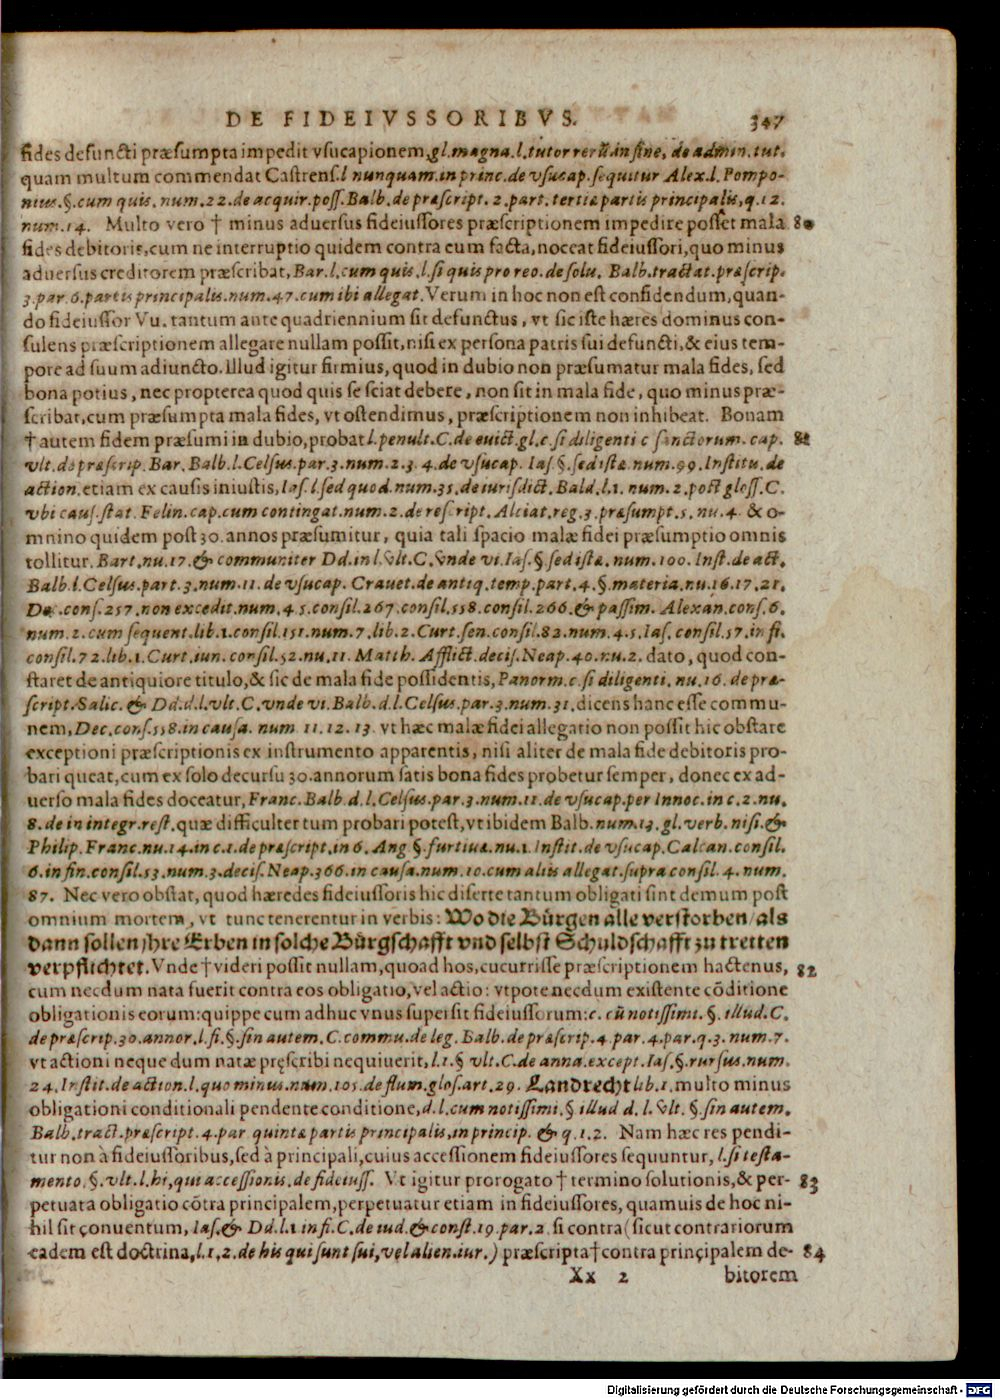 DE FIDEIVSSORIBVS. 347
fides defuncti præsumpta impedit vsucapionem, gl. magna. l. tutor rerũ in fine, de admin. tut.
quam multum commendat Castrens. l nunquam. in princ. de vsucap. sequitur Alex. l. Pompo-
nius. §. cum quis. num. 22. de acquir. poss. Balb. de præscript. 2. part. tertiæ partis principalis, q. 12.
num. 14. Multo vero † minus aduersus fideiussores præscriptionem impedire posset mala 80
fides debitoris, cum ne interruptio quidem contra eum facta, noceat fideiussori, quo minus
aduersus creditorem præscribat, Bar. l. cum quis. l. si quis pro reo. de solu. Balb. tractat. præscrip.
3. par. 6. partis principalis. num. 47. cum ibi allegat. Verum in hoc non est confidendum, quan-
do fideiussor Vu. tantum ante quadriennium sit defunctus, vt sic iste hæres dominus con-
sulens præscriptionem allegare nullam possit, nisi ex persona patris sui defuncti, & eius tem-
pore ad suum adiuncto. Illud igitur firmius, quod in dubio non præsumatur mala fides, sed
bona potius, nec propterea quod quis se sciat debere, non sit in mala fide, quo minus præ-
scribat, cum præsumpta mala fides, vt ostendimus, præscriptionem non inhibeat. Bonam
† autem fidem præsumi in dubio, probat l. penult. C. de euict. gl. c. si diligenti c sanctorum. cap. 81
vlt. de præscrip. Bar. Balb. l. Celsus. par. 3. num. 2. 3. 4. de vsucap. Ias. §. sed istæ. num. 99. Institu. de
action. etiam ex causis iniustis, Ias. l. sed quod. num. 35. de iurisdict. Bald. l. 1. num. 2. post gloss. C.
vbi caus. stat. Felin. cap. cum contingat. num. 2. de rescript. Alciat. reg. 3. præsumpt. 5. nu. 4. & o-
mnino quidem post 30. annos præsumitur, quia tali spacio malæ fidei præsumptio omnis
tollitur. Bart. nu. 17. & communiter Dd. in l. vlt. C. vnde vi. Ias. §. sed istæ. num. 100. Inst. de act.
Balb. l. Celsus. part. 3. num. 11. de vsucap. Crauet. de antiq. temp. part. 4. §. materia. nu. 16. 17. 21.
Dec. cons. 257. non excedit. num. 4. 5. consil. 267. consil. 558. consil. 266. & passim. Alexan. cons. 6.
num. 2. cum sequent. lib. 1. consil. 151. num. 7. lib. 2. Curt. sen. consil. 82. num. 4. 5. Ias. consil. 57. in fi.
consil. 72. lib. 1. Curt. iun. consil. 52. nu. 11. Matth. Afflict. decis. Neap. 40. nu. 2. dato, quod con-
staret de antiquiore titulo, & sic de mala fide possidentis, Panorm. c. si diligenti. nu. 16. de præ-
script. Salic. & Dd. d. l. vlt. C. vnde vi. Balb. d. l. Celsus. par. 3. num. 31. dicens hanc esse commu-
nem, Dec. cons. 558. in causa. num 11. 12. 13. vt hæc malæ fidei allegatio non possit hic obstare
exceptioni præscriptionis ex instrumento apparentis, nisi aliter de mala fide debitoris pro-
bari queat, cum ex solo decursu 30. annorum satis bona fides probetur semper, donec ex ad-
uerso mala fides doceatur, Franc. Balb d. l. Celsus. par. 3. num. 11. de vsucap. per Innoc. in c. 2. nu.
8. de in integr. rest. quæ difficulter tum probari potest, vt ibidem Balb. num. 13. gl. verb. nisi. &
Philip. Franc. nu. 14. in c. 1. de præscript. in 6. Ang §. furtiuæ. nu. 1. Instit. de vsucap. Calcan. consil.
6. in fin. consil. 53. num. 3. decis. Neap. 366. in causa. num. 10. cum aliis allegat. supra consil. 4. num.
87. Nec vero obstat, quod hæredes fideiussoris hic diserte tantum obligati sint demum post
omnium mortem, vt tunc tenerentur in verbis: Wo die Bürgen alle verstorben / als
dann sollen jhre Erben in solche Bürgschafft vnd selbst Schuldschafft zu tretten
verpflichtet. Vnde † videri possit nullam, quoad hos, cucurrisse præscriptionem hactenus, 82
cum necdum nata fuerit contra eos obligatio, vel actio: vtpote necdum existente cōditione
obligationis eorum: quippe cum adhuc vnus supersit fideiussorum: c. cũ notissimi. §. illud. C.
de præscrip. 30. annor. l. fi. §. sin autem. C. commu. de leg. Balb. de præscrip. 4. par. 4. par. q. 3. num. 7.
vt actioni neque dum natæ pręscribi nequiuerit, l. 1. § vlt. C. de anna. except. Ias. §. rursus. num.
24. Instit. de action. l. quo minus. num. 105. de flum. glos. art. 29. Landrecht lib. 1. multo minus
obligationi conditionali pendente conditione, d. l. cum notissimi. § illud d. l. vlt. §. sin autem.
Balb. tract. præscript. 4. par quintæ partis principalis, in princip. & q. 1. 2. Nam hæc res pendi-
tur non à fideiussoribus, sed à principali, cuius accessionem fideiussores sequuntur, l. si testa-
mento. §. vlt. l. hi, qui accessionis. de fideiuss. Vt igitur prorogato † termino solutionis, & per- 83
petuata obligatio cōtra principalem, perpetuatur etiam in fideiussores, quamuis de hoc ni-
hil sit conuentum, Ias. & Dd. l. 1 in fi. C. de iud. & const. 19. par. 2. si contra (sicut contrariorum
eadem est doctrina, l. 1. 2. de his qui sunt sui, vel alien. iur.) præscripta † contra principalem de- 84
Xx 2 bitorem
Digitalisierung gefördert durch die Deutsche Forschungsgemeinschaft - DFG